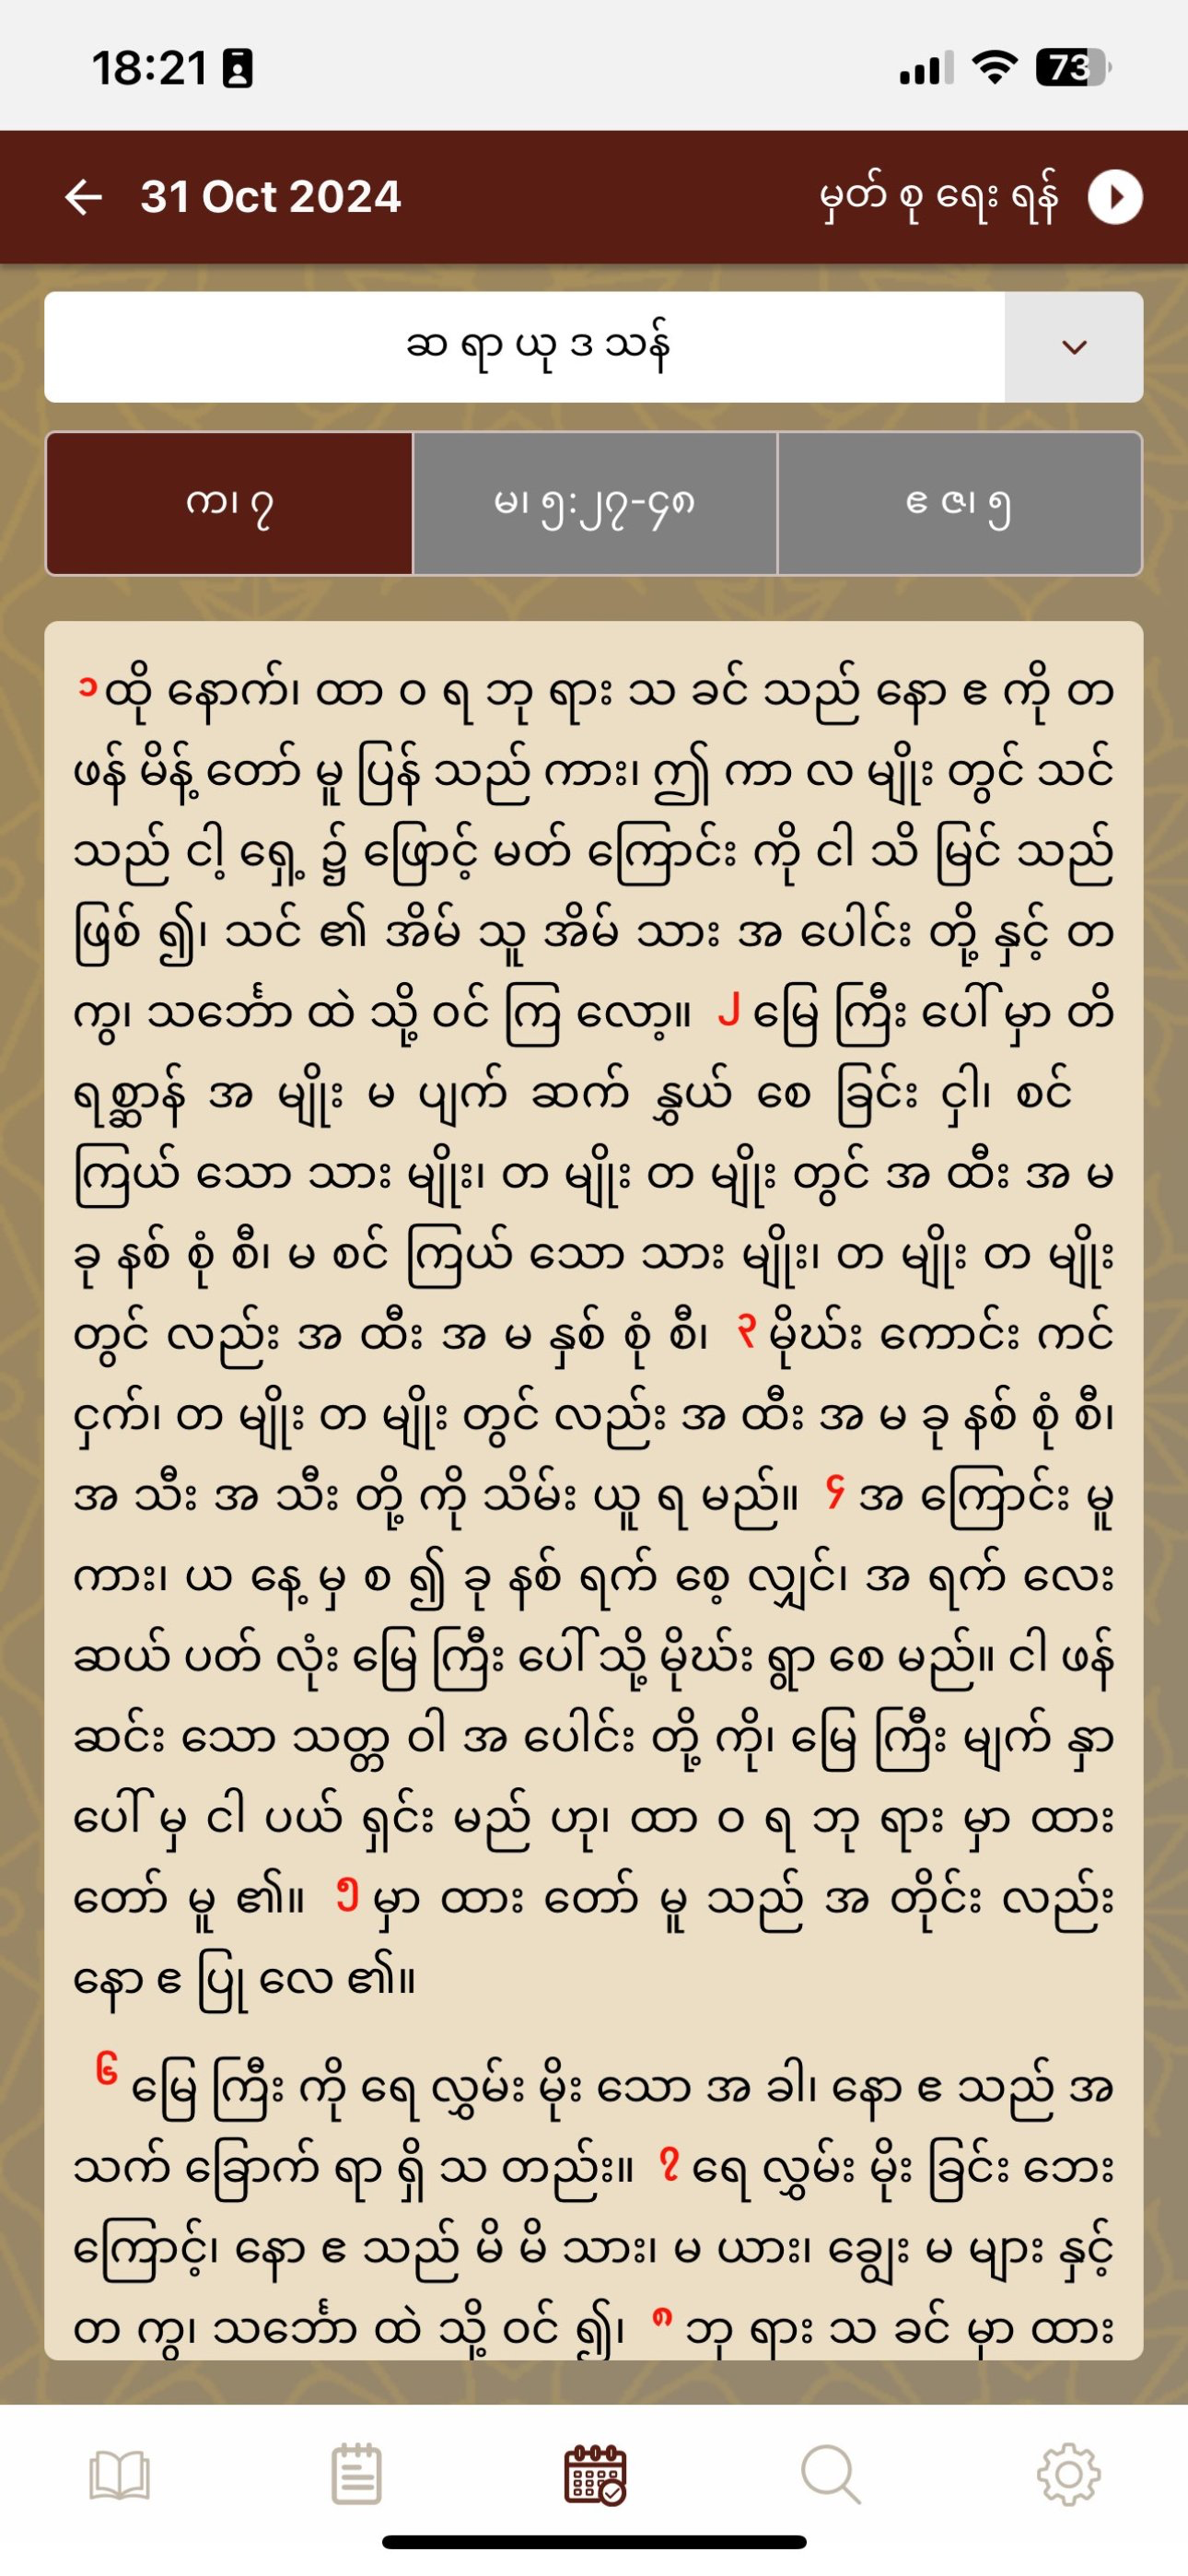 18:21
73
31 Oct 2024
မှတ် စု ရေး ရန်
ဆ ရာ ယု ဒ သန်
က၊ ၇
မ၊ ၅:၂၇-၄၈
ဧ ဇ၊ ၅
၁ ထို နောက်၊ ထာ ဝ ရ ဘု ရား သ ခင် သည် နော ဧ ကို တ
ဖန် မိန့် တော် မူ ပြန် သည် ကား၊ ဤ ကာ လ မျိုး တွင် သင်
သည် ငါ့ ရှေ့ ၌ ဖြောင့် မတ် ကြောင်း ကို ငါ သိ မြင် သည်
ဖြစ် ၍၊ သင် ၏ အိမ် သူ အိမ် သား အ ပေါင်း တို့ နှင့် တ
ကွ၊ သင်္ဘော ထဲ သို့ ဝင် ကြ လော့။ ၂ မြေ ကြီး ပေါ် မှာ တိ
ရစ္ဆာန် အ မျိုး မ ပျက် ဆက် နွှယ် စေ ခြင်း ငှါ၊ စင်
ကြယ် သော သား မျိုး၊ တ မျိုး တ မျိုး တွင် အ ထီး အ မ
ခု နစ် စုံ စီ၊ မ စင် ကြယ် သော သား မျိုး၊ တ မျိုး တ မျိုး
တွင် လည်း အ ထီး အ မ နှစ် စုံ စီ၊ ၃ မိုဃ်း ကောင်း ကင်
ငှက်၊ တ မျိုး တ မျိုး တွင် လည်း အ ထီး အ မ ခု နစ် စုံ စီ၊
အ သီး အ သီး တို့ ကို သိမ်း ယူ ရ မည်။ ၄ အ ကြောင်း မူ
ကား၊ ယ နေ့ မှ စ ၍ ခု နစ် ရက် စေ့ လျှင်၊ အ ရက် လေး
ဆယ် ပတ် လုံး မြေ ကြီး ပေါ် သို့ မိုဃ်း ရွာ စေ မည်။ ငါ ဖန်
ဆင်း သော သတ္တ ဝါ အ ပေါင်း တို့ ကို၊ မြေ ကြီး မျက် နှာ
ပေါ် မှ ငါ ပယ် ရှင်း မည် ဟု၊ ထာ ဝ ရ ဘု ရား မှာ ထား
တော် မူ ၏။ ၅ မှာ ထား တော် မူ သည် အ တိုင်း လည်း
နော ဧ ပြု လေ ၏။
၆ မြေ ကြီး ကို ရေ လွှမ်း မိုး သော အ ခါ၊ နော ဧ သည် အ
သက် ခြောက် ရာ ရှိ သ တည်း။ ၇ ရေ လွှမ်း မိုး ခြင်း ဘေး
ကြောင့်၊ နော ဧ သည် မိ မိ သား၊ မ ယား၊ ချွေး မ များ နှင့်
တ ကွ၊ သင်္ဘော ထဲ သို့ ဝင် ၍၊ ၈ ဘု ရား သ ခင် မှာ ထား